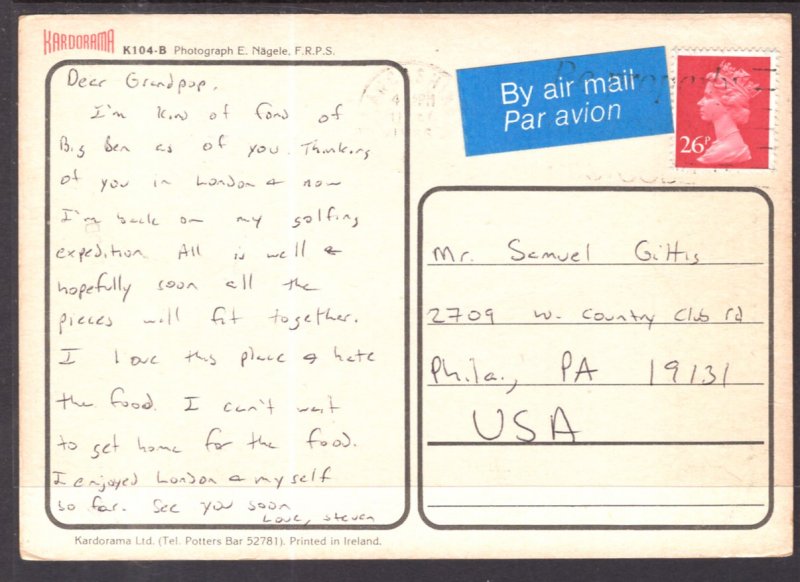 KARDORAMA K104-B Photograph E. Nägele, F.R.P.S.
Dear Grandpop,
I'm kind of fond of
Big Ben as of you. Thinking
of you in London & now
I'm back on my golfing
expedition. All is well &
hopefully soon all the
pieces will fit together.
I love this place & hate
the food. I can't wait
to get home for the food.
I enjoyed London & myself
so far. See you soon
Love, Steven
Kardorama Ltd. (Tel. Potters Bar 52781). Printed in Ireland.
By air mail
Par avion
26P
Mr. Samuel Gittis
2709 W. Country Club rd
Phila., PA 19131
USA